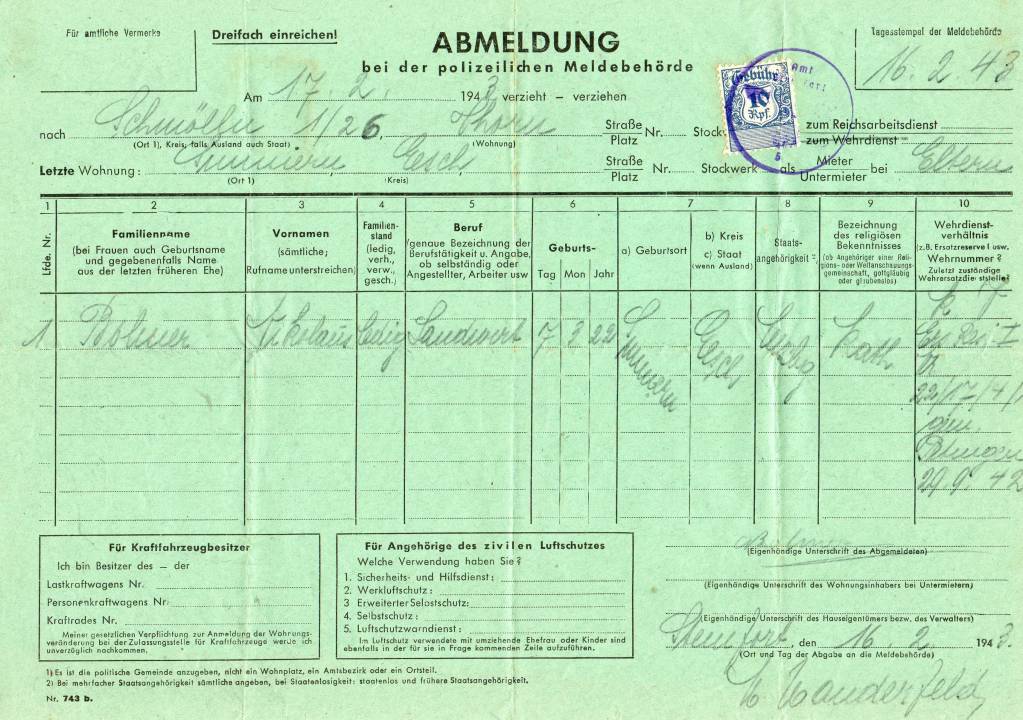 Für amtliche Vermerke
Dreifach einreichen!
ABMELDUNG
bei der polizeilichen Meldebehörde
Tagesstempel der Meldebehörde
16. 2. 43
Gebühr
10
Rpf.
Amt
Am 17. 2. 1943 verzieht – verziehen
nach 1/26. Thorn Straße Platz Nr. Stock zum Reichsarbeitsdienst zum Wehrdienst
(Ort 1), Kreis, falls Ausland auch Staat) (Wohnung)
Letzte Wohnung: Esch Straße Platz Nr. Stockwerk als Mieter Untermieter bei Eltern
(Ort 1) (Kreis)
1 2 3 4 5 6 7 8 9 10
Lfde. Nr.
Familienname
(bei Frauen auch Geburtsname
und gegebenenfalls Name
aus der letzten früheren Ehe)
Vornamen
(sämtliche;
Rufname unterstreichen)
Familien-
stand
(ledig,
verh.,
verw.,
gesch.)
Beruf
(genaue Bezeichnung der
Berufstätigkeit u. Angabe,
ob selbständig oder
Angestellter, Arbeiter usw
Geburts-
Tag Mon Jahr
a) Geburtsort
b) Kreis
c) Staat
(wenn Ausland)
Staats-
angehörigkeit 2)
Bezeichnung
des religiösen
Bekenntnisses
(ob Angehöriger einer Reli-
gions- oder Weltanschauungs-
gemeinschaft, gottgläubig
oder glaubenslos)
Wehrdienst-
verhältnis
(z.B. Ersatzreserve I usw.
Wehrnummer?
Zuletzt zuständige
Wehrersatzdienststelle?
1 Nikolaus ledig Landwirt 7 3 22 Esch Kath.
22/17/4/1
29.9.42
Für Kraftfahrzeugbesitzer
Ich bin Besitzer des – der
Lastkraftwagens Nr.
Personenkraftwagens Nr.
Kraftrades Nr.
Meiner gesetzlichen Verpflichtung zur Anmeldung der Wohnungs-
veränderung bei der Zulassungsstelle für Kraftfahrzeuge werde ich
unverzüglich nachkommen.
Für Angehörige des zivilen Luftschutzes
Welche Verwendung haben Sie?
1. Sicherheits- und Hilfsdienst:
2. Werkluftschutz:
3 Erweiterter Selbstschutz:
4. Selbstschutz:
5. Luftschutzwarndienst:
Im Luftschutz verwendete mit umziehende Ehefrau oder Kinder sind
ebenfalls in der für sie in Frage kommenden Zeile aufzuführen.
(Eigenhändige Unterschrift des Abgemeldeten)
(Eigenhändige Unterschrift des Wohnungsinhabers bei Untermietern)
(Eigenhändige Unterschrift des Hauseigentümers bezw. des Verwalters)
, den 16. 2. 1943.
(Ort und Tag der Abgabe an die Meldebehörde)
Manderfeld
1) Es ist die politische Gemeinde anzugeben, nicht ein Wohnplatz, ein Amtsbezirk oder ein Ortsteil.
2) Bei mehrfacher Staatsangehörigkeit sämtliche angeben, bei Staatenlosigkeit: staatenlos und frühere Staatsangehörigkeit.
Nr. 743 b.